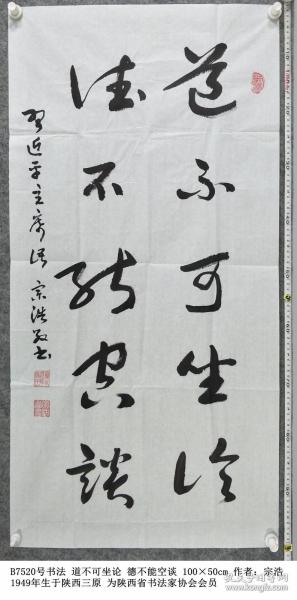 道不可坐论
德不能空谈
习近平主席语 宗浩敬书
B7520号书法 道不可坐论 德不能空谈 100×50cm 作者：宗浩
1949年生于陕西三原 为陕西省书法家协会会员